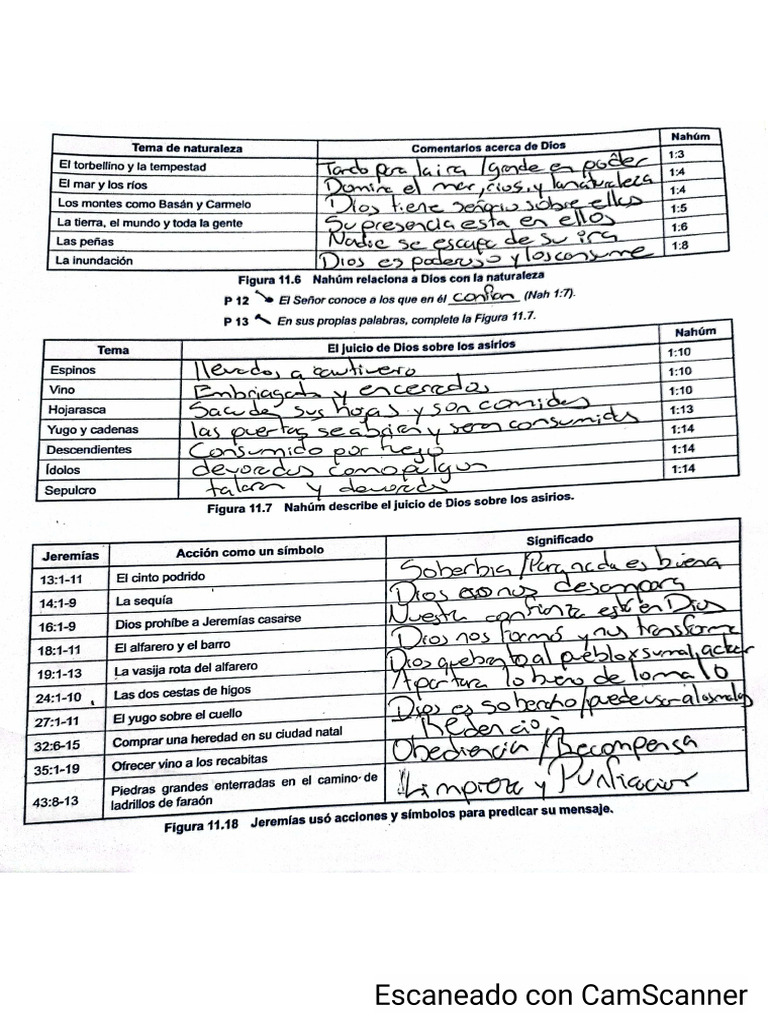 Tema de naturaleza Comentarios acerca de Dios Nahúm
El torbellino y la tempestad Tardo para la ira / grande en poder 1:3
El mar y los ríos Domina el mar, rios, y la naturaleza 1:4
Los montes como Basán y Carmelo Dios tiene señorio sobre ellos 1:4
La tierra, el mundo y toda la gente Su presencia esta en ellos 1:5
Las peñas Nadie se escapa de su ira 1:6
La inundación Dios es poderoso y los consume 1:8
Figura 11.6 Nahúm relaciona a Dios con la naturaleza
P 12 El Señor conoce a los que en él confian (Nah 1:7).
P 13 En sus propias palabras, complete la Figura 11.7.
Tema El juicio de Dios sobre los asirios Nahúm
Espinos llevados a cautivero 1:10
Vino Embriagados y encerados 1:10
Hojarasca Sacudes sus hojas y son comidas 1:10
Yugo y cadenas las puertas se abriran y seran consumidos 1:13
Descendientes Consumido por fuego 1:14
Ídolos devorados como pulgon 1:14
Sepulcro talaran y 1:14
Figura 11.7 Nahúm describe el juicio de Dios sobre los asirios.
Jeremías Acción como un símbolo Significado
13:1-11 El cinto podrido Soberbia / Para nada es buena
14:1-9 La sequía Dios nos desampara
16:1-9 Dios prohíbe a Jeremías casarse Nuestra confianza está en Dios
18:1-11 El alfarero y el barro Dios nos formó y nos transforma
19:1-13 La vasija rota del alfarero Dios quebranto al pueblo x su mal actuar
24:1-10 Las dos cestas de higos Apartara lo bueno de lo malo
27:1-11 El yugo sobre el cuello Dios es soberano / puede usar a los malos
32:6-15 Comprar una heredad en su ciudad natal Redención
35:1-19 Ofrecer vino a los recabitas Obediencia / Recompensa
43:8-13 Piedras grandes enterradas en el camino de Limpieza y Purificacion
ladrillos de faraón
Figura 11.18 Jeremías usó acciones y símbolos para predicar su mensaje.
Escaneado con CamScanner